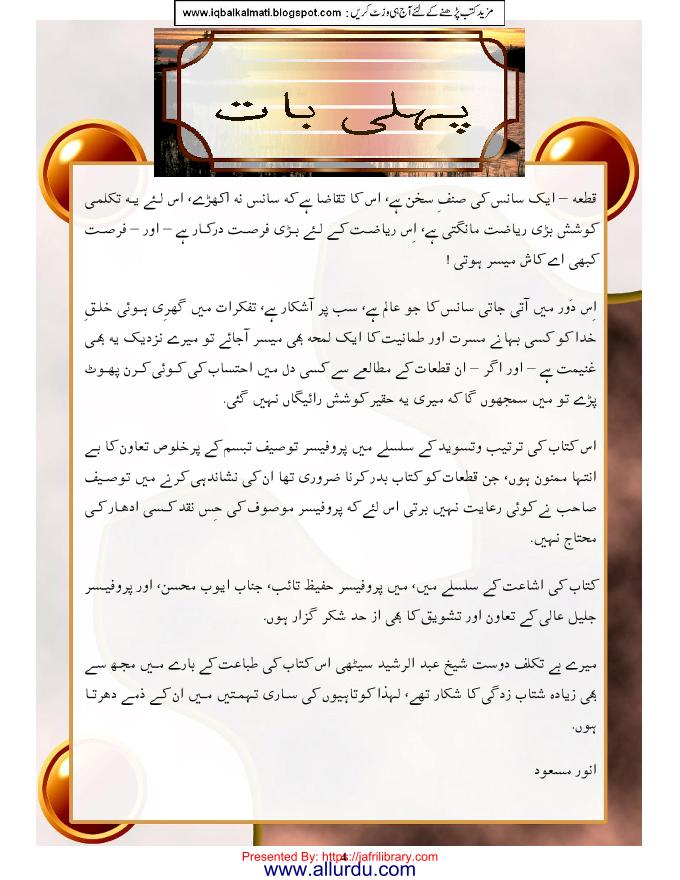 مزید کتب پڑھنے کے لئے آج ہی وزٹ کریں : www.iqbalkalmati.blogspot.com
پہلی بات
قطعہ – ایک سانس کی صنفِ سخن ہے، اس کا تقاضا ہے کہ سانس نہ اکھڑے، اس لئے یہ تکلمی
کوشش بڑی ریاضت مانگتی ہے، اِس ریاضت کے لئے بڑی فرصت درکار ہے – اور – فرصت
کبھی اے کاش میسر ہوتی !
اِس دَور میں آتی جاتی سانس کا جو عالم ہے، سب پر آشکار ہے، تفکرات میں گھری ہوئی خلقِ
خدا کو کسی بہانے مسرت اور طمانیت کا ایک لمحہ بھی میسر آجائے تو میرے نزدیک یہ بھی
غنیمت ہے – اور اگر – ان قطعات کے مطالعے سے کسی دل میں احتساب کی کوئی کرن پھوٹ
پڑے تو میں سمجھوں گا کہ میری یہ حقیر کوشش رائیگاں نہیں گئی.
اس کتاب کی ترتیب وتسوید کے سلسلے میں پروفیسر توصیف تبسم کے پرخلوص تعاون کا بے
انتہا ممنون ہوں، جن قطعات کو کتاب بدر کرنا ضروری تھا ان کی نشاندہی کرنے میں توصیف
صاحب نے کوئی رعایت نہیں برتی اس لئے کہ پروفیسر موصوف کی حِس نقد کسی ادھار کی
محتاج نہیں.
کتاب کی اشاعت کے سلسلے میں، میں پروفیسر حفیظ تائب، جناب ایوب محسن، اور پروفیسر
جلیل عالی کے تعاون اور تشویق کا بھی از حد شکر گزار ہوں.
میرے بے تکلف دوست شیخ عبد الرشید سیٹھی اس کتاب کی طباعت کے بارے میں مجھ سے
بھی زیادہ شتاب زدگی کا شکار تھے، لہذا کوتاہیوں کی ساری تہمتیں میں ان کے ذمے دھرتا
ہوں.
انور مسعود
4
Presented By: https://jafrilibrary.com
www.allurdu.com